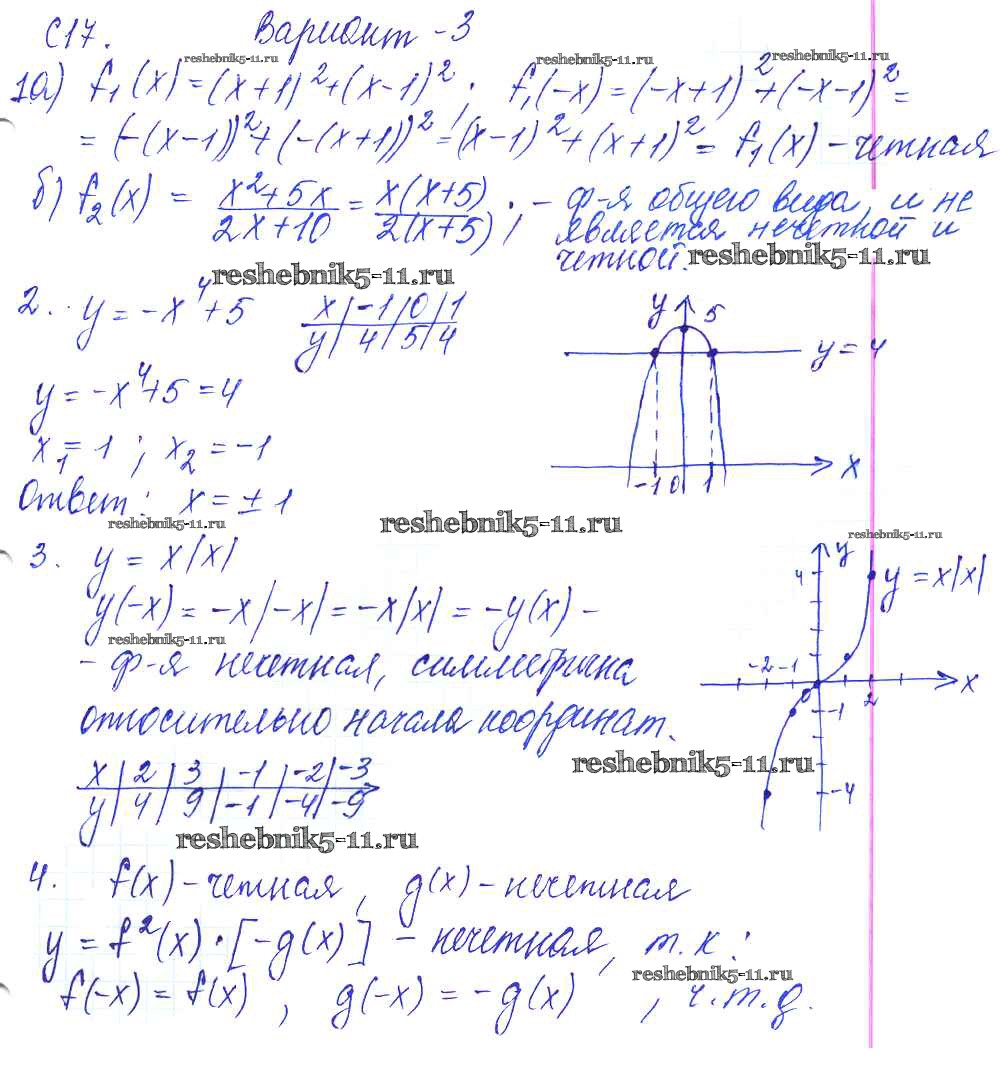 С17. Вариант -3
reshebnik5-11.ru reshebnik5-11.ru reshebnik5-11.ru
1а) f₁(x) = (x+1)² + (x-1)². f₁(-x) = (-x+1)² + (-x-1)² =
= (-(x-1))² + (-(x+1))² = (x-1)² + (x+1)² = f₁(x) - четная
б) f₂(x) = (x²+5x)/(2x+10) = x(x+5)/2(x+5); - ф-я общего вида, и не
является нечетной и
четной.
reshebnik5-11.ru reshebnik5-11.ru
2. y = -x⁴+5
x | -1 | 0 | 1
y | 4 | 5 | 4
y = -x⁴+5 = 4
x₁ = 1 ; x₂ = -1
Ответ: x = ± 1
y 5
y = 4
-1 0 1 x
reshebnik5-11.ru reshebnik5-11.ru reshebnik5-11.ru
3. y = x|x|
y(-x) = -x|-x| = -x|x| = -y(x) -
reshebnik5-11.ru
- ф-я нечетная, симметрична
относительно начала координат.
x | 2 | 3 | -1 | -2 | -3
y | 4 | 9 | -1 | -4 | -9
y
4 y = x|x|
-2 -1 0 2 x
-1
-4
reshebnik5-11.ru
reshebnik5-11.ru
4. f(x) - четная, g(x) - нечетная
y = f²(x)·[-g(x)] - нечетная, т.к:
reshebnik5-11.ru
f(-x) = f(x) , g(-x) = -g(x) , ч.т.д.